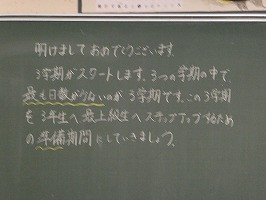 明けましておめでとうございます。
3学期がスタートします。3つの学期の中で、
最も日数が少ないのが3学期です。この3学期
を3年生へ最上級生へステップアップするため
の準備期間にしていきましょう。